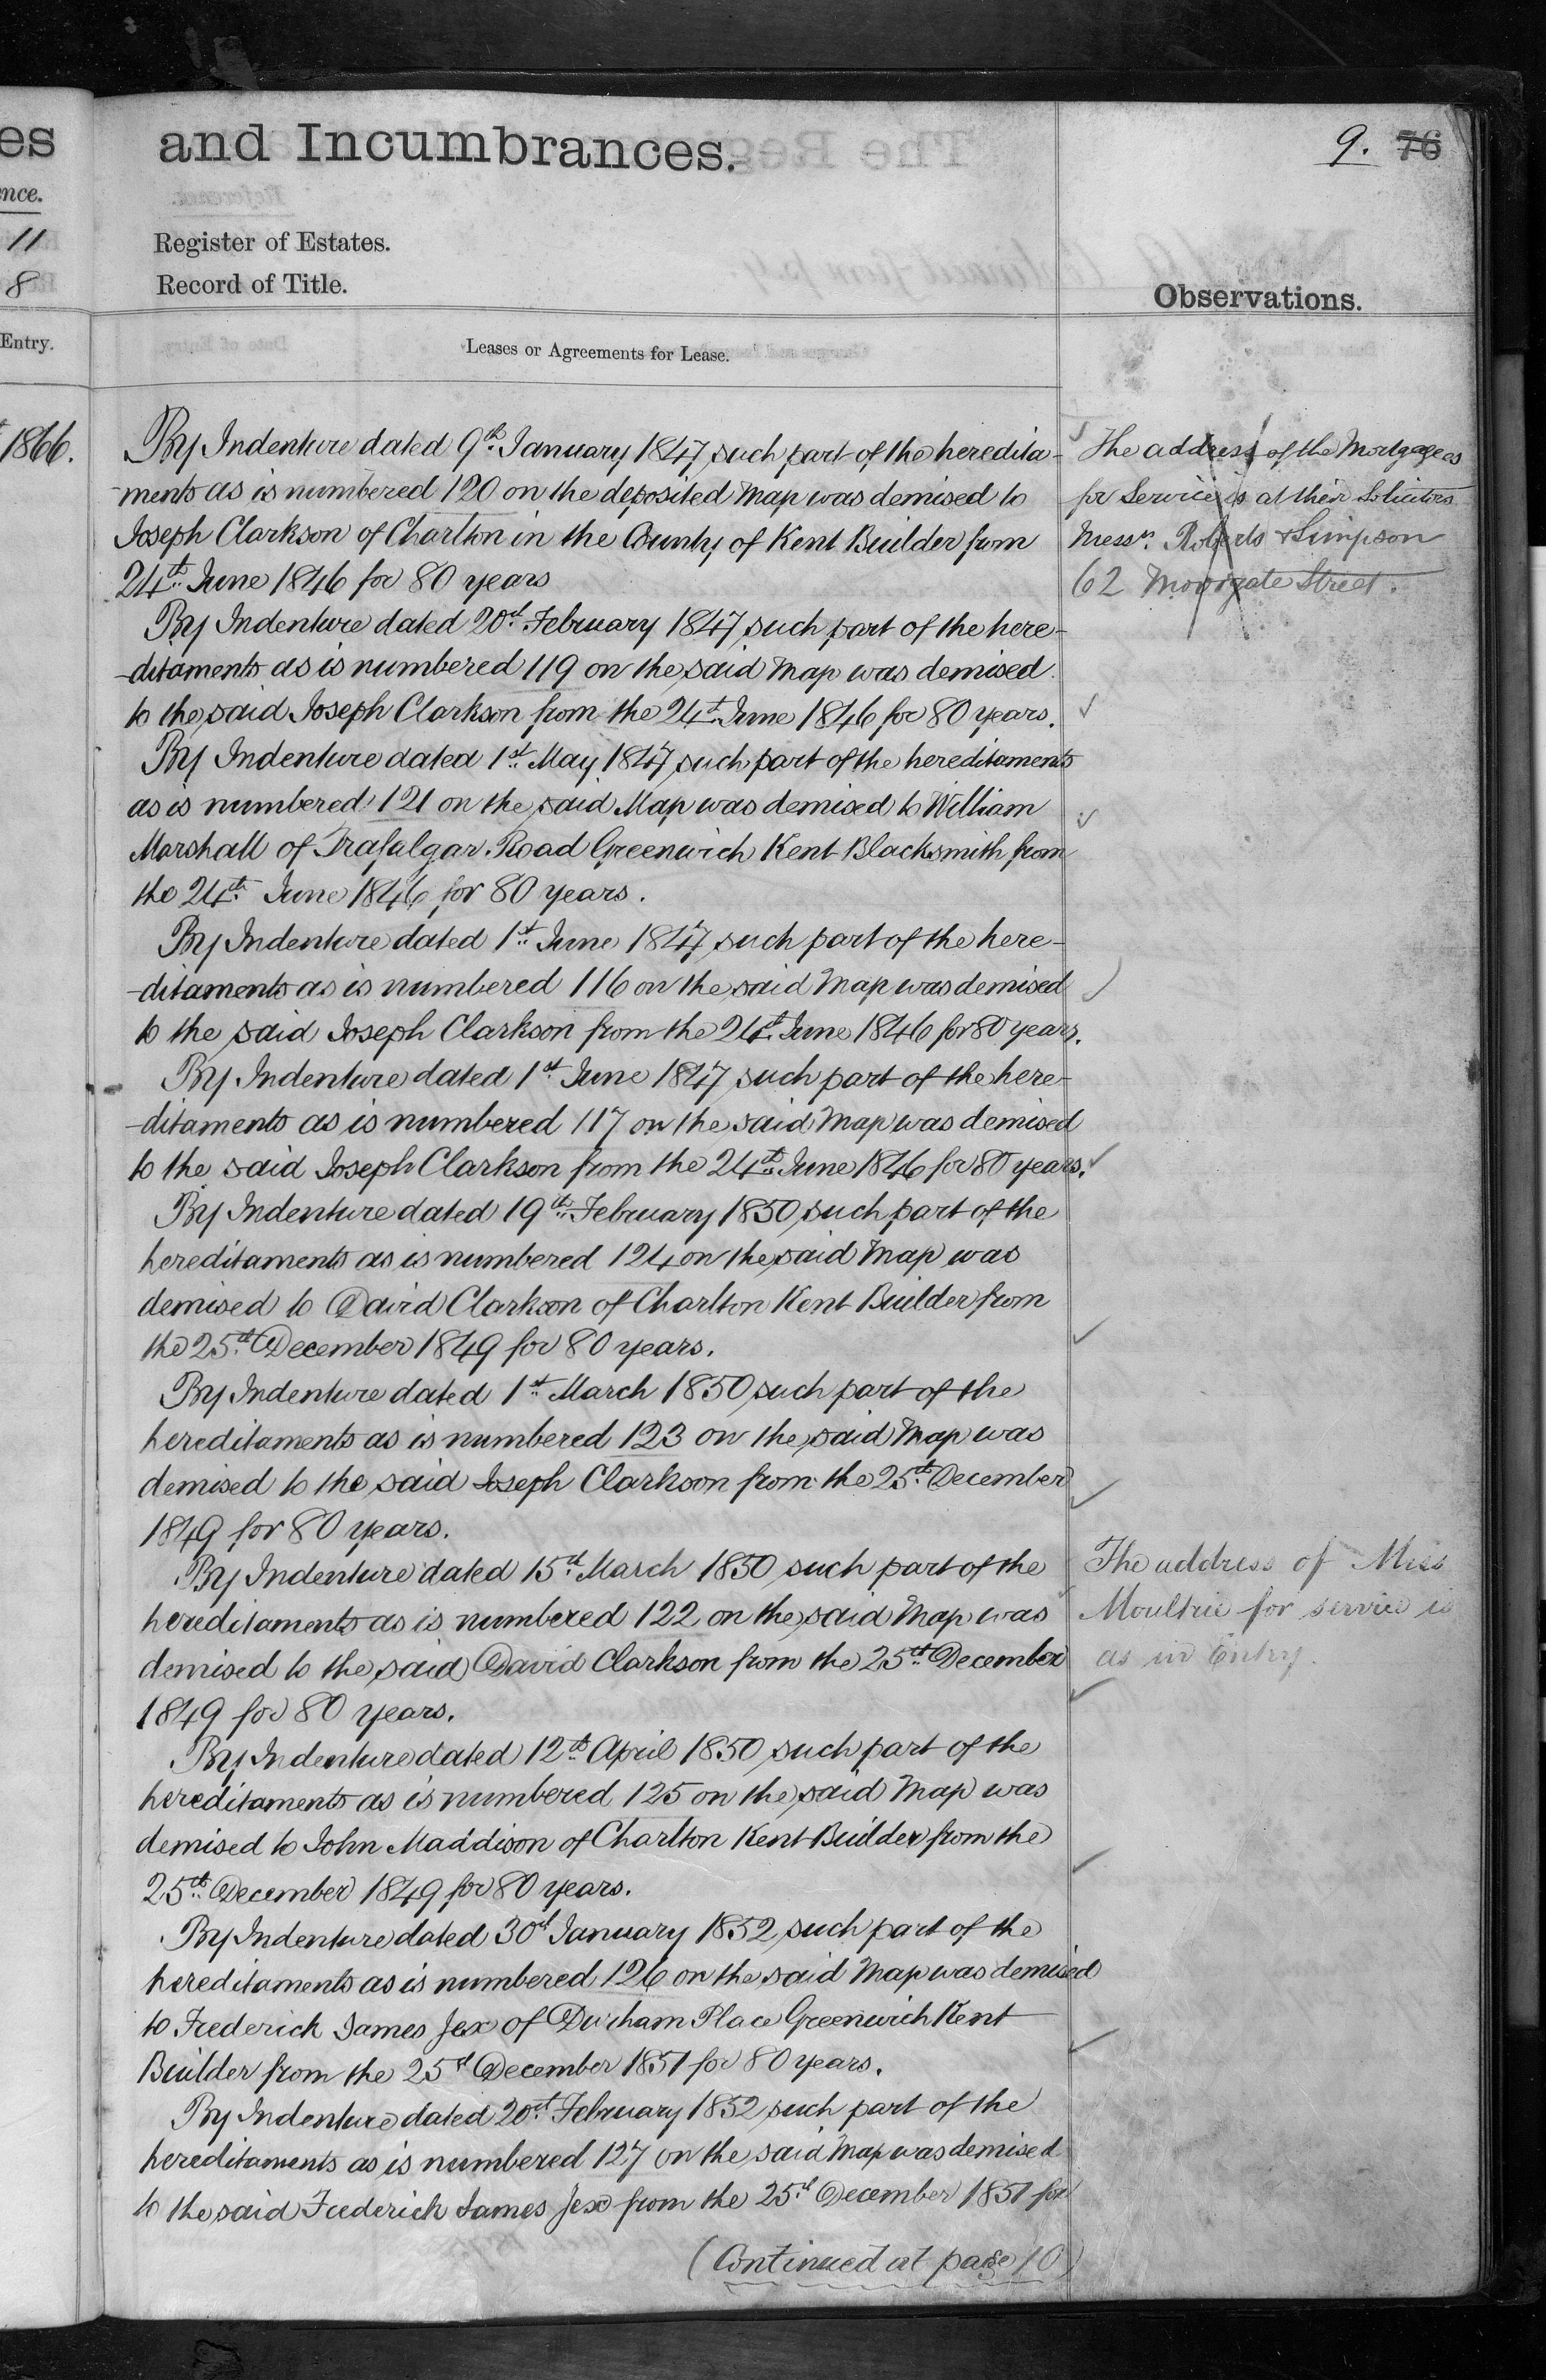 es
nce.
11
8
Entry.
1866.
and Incumbrances.
9. 76
Register of Estates.
Record of Title.
Observations.
Leases or Agreements for Lease.
By Indenture dated 9th January 1847 such part of the heredita-
-ments as is numbered 120 on the deposited Map was demised to
Joseph Clarkson of Charlton in the County of Kent Builder from
24th June 1846 for 80 years
By Indenture dated 20th February 1847 such part of the here-
-ditaments as is numbered 119 on the said Map was demised
to the said Joseph Clarkson from the 24th June 1846 for 80 years.
By Indenture dated 1st May 1847 such part of the hereditaments
as is numbered 121 on the said Map was demised to William
Marshall of Trafalgar Road Greenwich Kent Blacksmith from
the 24th June 1846 for 80 years.
By Indenture dated 1st June 1847 such part of the here-
-ditaments as is numbered 116 on the said Map was demised
to the said Joseph Clarkson from the 24th June 1846 for 80 years.
By Indenture dated 1st June 1847 such part of the here-
-ditaments as is numbered 117 on the said Map was demised
to the said Joseph Clarkson from the 24th June 1846 for 80 years.
By Indenture dated 19th February 1850 such part of the
hereditaments as is numbered 124 on the said Map was
demised to David Clarkson of Charlton Kent Builder from
the 25th December 1849 for 80 years.
By Indenture dated 1st March 1850 such part of the
hereditaments as is numbered 123 on the said Map was
demised to the said Joseph Clarkson from the 25th December
1849 for 80 years.
By Indenture dated 15th March 1850 such part of the
hereditaments as is numbered 122 on the said Map was
demised to the said David Clarkson from the 25th December
1849 for 80 years.
By Indenture dated 12th April 1850 such part of the
hereditaments as is numbered 125 on the said Map was
demised to John Maddison of Charlton Kent Builder from the
25th December 1849 for 80 years.
By Indenture dated 30th January 1852 such part of the
hereditaments as is numbered 126 on the said Map was demised
to Frederick James Jex of Durham Place Greenwich Kent
Builder from the 25th December 1851 for 80 years.
By Indenture dated 20th February 1852 such part of the
hereditaments as is numbered 127 on the said Map was demised
to the said Frederick James Jex from the 25th December 1851 for
(Continued at page 10)
The address of the Mortgagees
for Service is at their Solicitors
Messrs. Roberts & Simpson
62 Moorgate Street.
The address of Miss
Moultrie for service is
as in Entry.